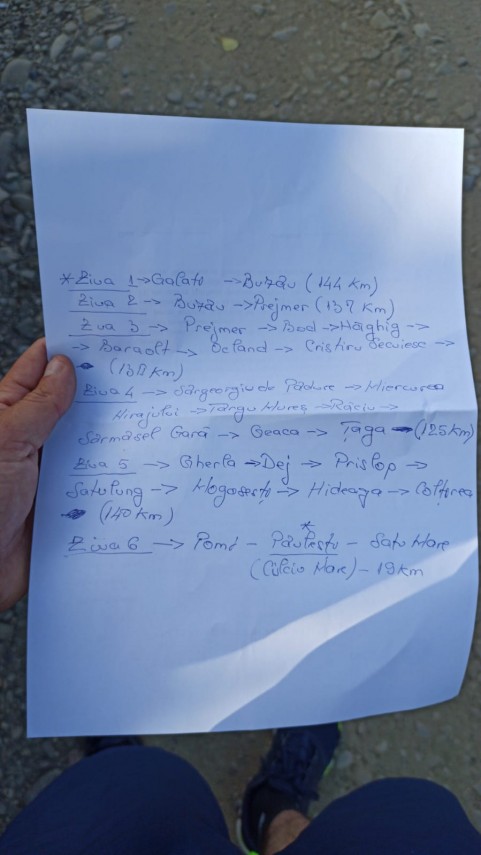 * Ziua 1 → Galați → Buzău (144 km)
Ziua 2 → Buzău → Prejmer (137 km)
Ziua 3 → Prejmer → Bod → Hălghig →
→ Baraolt → Ocland → Cristiru Secuiesc →
(137 km)
Ziua 4 → Sângeorgiu de Pădure → Miercurea
Nirajului → Târgu Mureș → Râciu →
Sărmășel Gară → Geaca → Țaga (125 km)
Ziua 5 → Gherla → Dej → Prislop →
Satulung → Mogosești → Hideaga → Colțirea
(140 km)
Ziua 6 → Pomi - Păulești - Satu Mare
*
(Culciu Mare) - 19 km